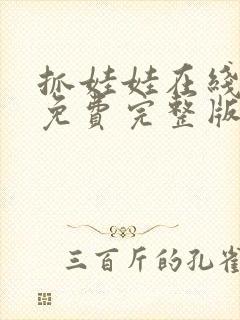 抓娃娃在线
免費完整版
三百斤的孔雀